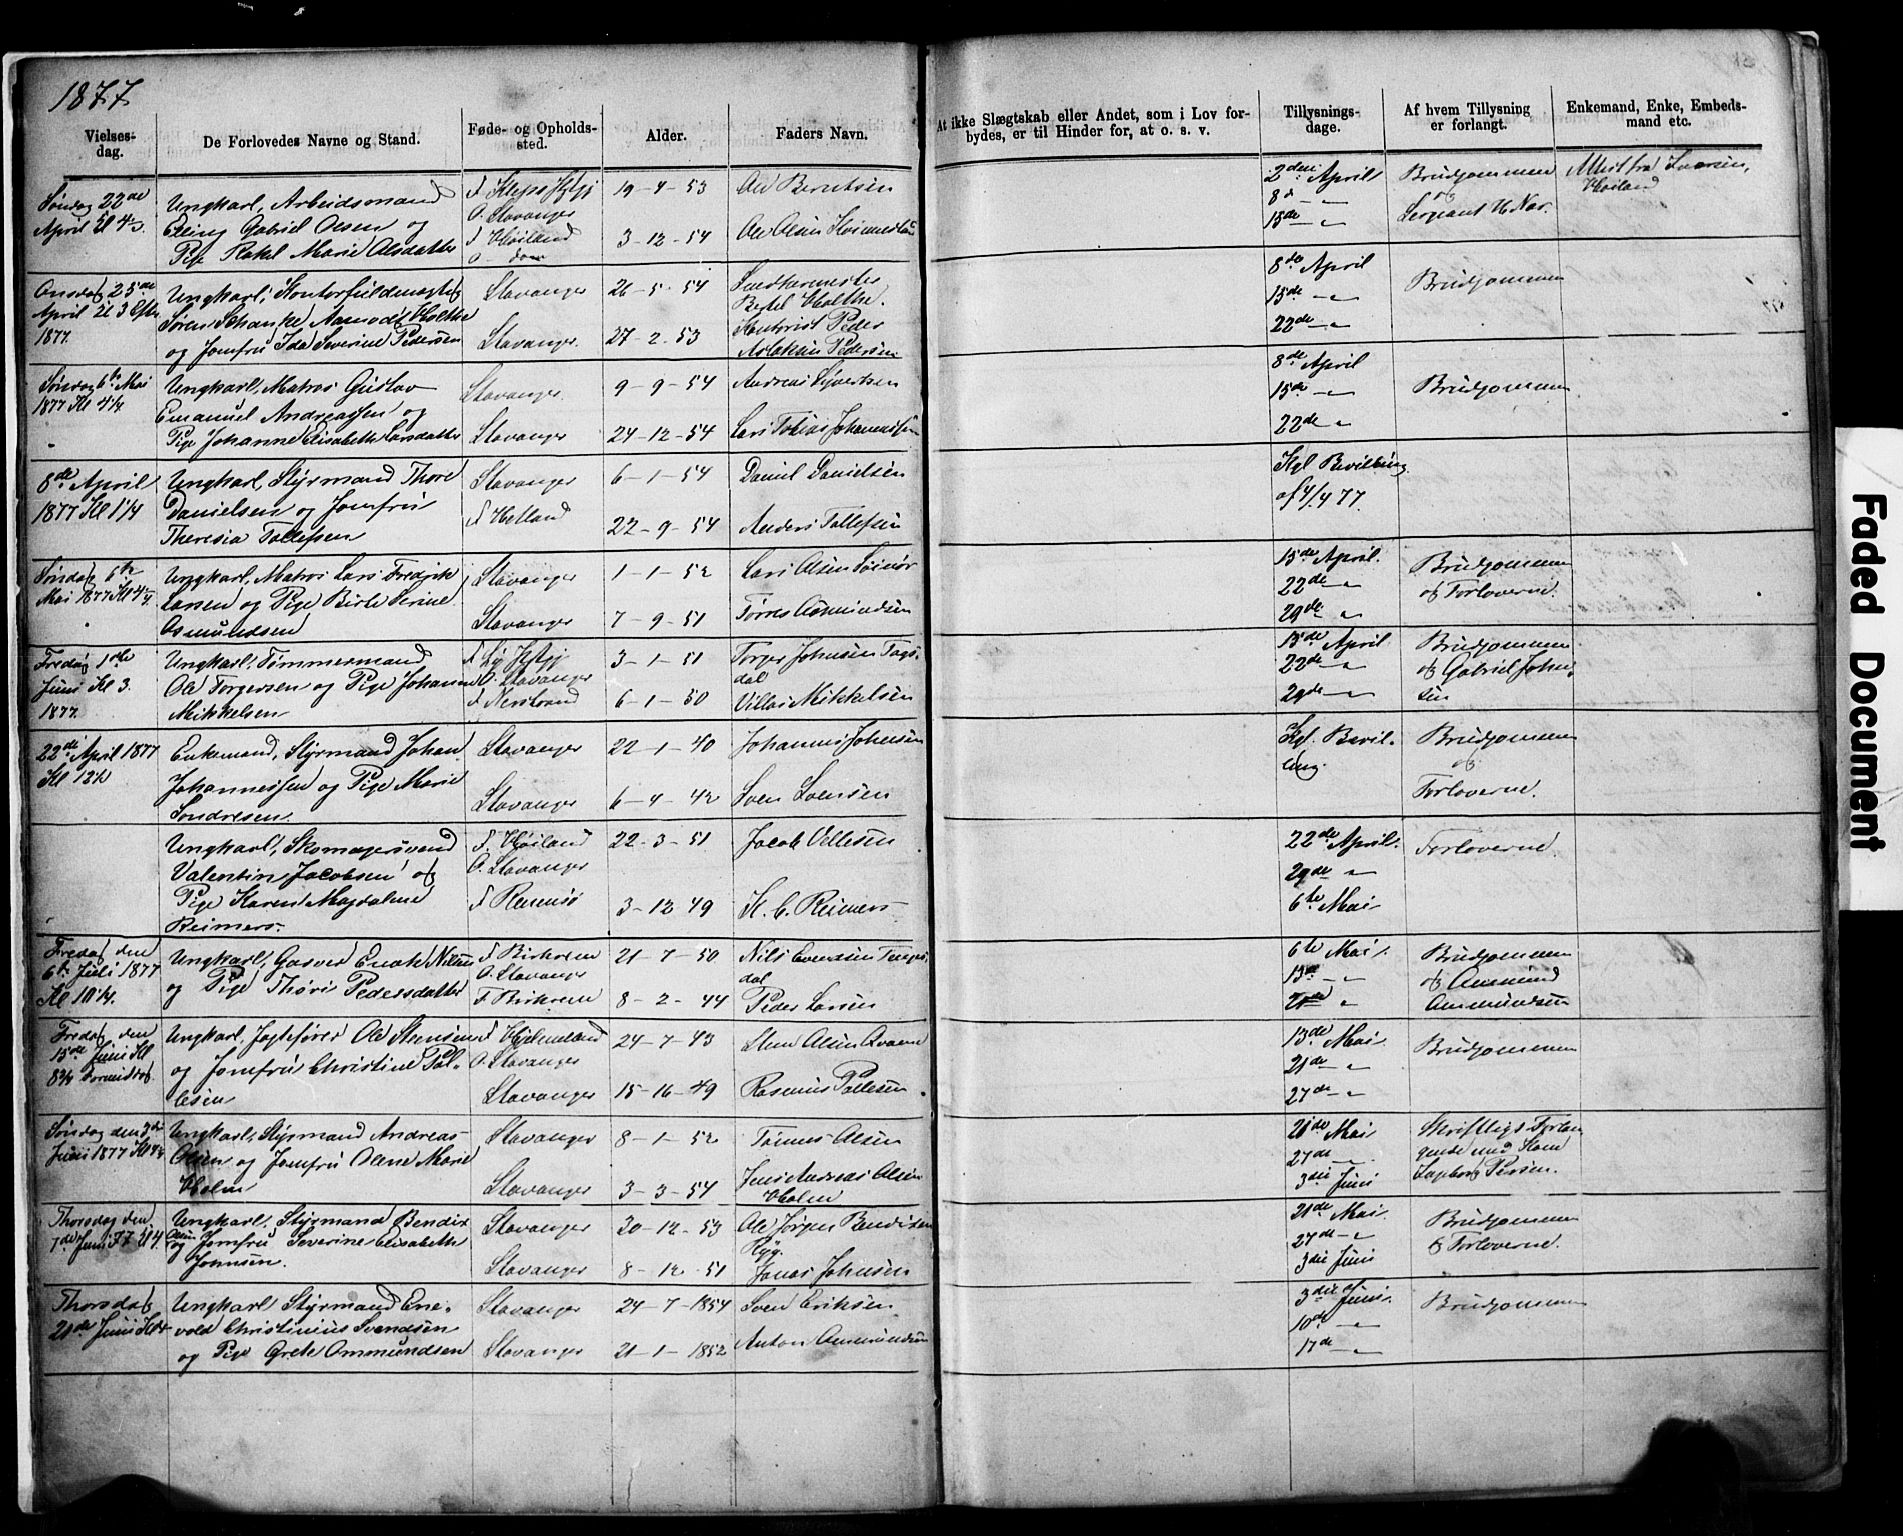 1877.
Vielses-
dag.
De Forlovedes Navne og Stand.
Føde- og Opholds-
sted.
Alder.
Faders Navn.
At ikke Slægtskab eller Andet, som i Lov for-
bydes, er til Hinder for, at o. s. v.
Tillysnings-
dage.
Af hvem Tillysning
er forlangt.
Enkemand, Enke, Embeds-
mand etc.
Søndag 22de
April Kl 4½.
Ungkarl, Arbeidsmand
Eling Gabriel Olsen og
Pige Rakel Marie Olsdatter
f Klepp
O. Stavanger
f Høiland
19-4-53
3-12-54
Ole Berntsen
Ole Olsen
2den April
8d - "
15de - "
Brudgommen
og
Sergeant
Attest fra
Høiland
Onsdag 25de
April Kl 3 Eftm
1877.
Ungkarl, Kontorfuldmægtig
Søren Schanke Aamodt Holthe
og Jomfru Ida Severine Pedersen
Stavanger
Stavanger.
26-5-54
27-2-53
Bertel Holthe.
Kontorist Peder
Aslaksen Pedersen
8de April
15de - "
22de - "
Brudgommen
Søndag 6te Mai
1877 Kl 4¼.
Ungkarl, Matros Gustav
Emanuel Andreassen og
Pige Johanne Elisabeth Larsdatter
Stavanger.
Stavanger
9-9-54
24-12-54
Andreas Syvertsen
Lars Tobias Johannessen
8de April
15de - "
22de "
Brudgommen
8de April
1877 Kl 1¼
Ungkarl, Styrmand Thore
Danielsen og Jomfru
Theresia Tollefsen
Stavanger
f Hetland
6-1-54
22-9-54
Daniel Danielsen
Anders Tollefsen
Kgl Bevilling
af 4/4 77.
Søndag 6te
Mai 1877 Kl 4¼
Ungkarl, Matros Lars Fredrik
Larsen og Pige Birte Serine
Osmundsen
Stavanger
Stavanger
1-1-52
7-9-51
Lars Olsen
Tørres Osmundsen
15de April.
22de - "
29de "
Brudgommen
og Forloverne.
Fredag 1ste
Juni Kl 3.
1877.
Ungkarl, Tømmermand
Ole Torgersen og Pige Johanne
Mikkelsen
O. Stavanger
f Nerstrand
3-1-51
6-1-50
Torger Johnsen Tags-
dal
Villas Mikkelsen
15de April
22de - "
29de - "
Brudgommen
og Gabriel John-
sen
22de April 1877
Kl 12½
Enkemand, Styrmand Johan
Johannessen og Pige Marie
Sondresen.
Stavanger
Stavanger
22-1-40
6-4-42
Johannes Johnsen
Sven Svensen
Kgl. Bevil-
ling.
Brudgommen
og
Forloverne.
Ungkarl, Skomagersvend
Valentin Jacobsen og
Pige Karen Magdalene
Reimers.
f. Høiland
O. Stavanger
f Rennesø
22-3-51
3-12-49
Jacob Vellesen
H. C. Reimers
22de April.
29de "
6te Mai
Forloverne.
Fredag den
6te Juli 1877
Kl 10¼.
Ungkarl, Gasver Enok Nilsen
og Pige Thøri Pedersdatter
f Birkrem
O. Stavanger
f Birkrem
21-7-50
8-2-44
Nils Evensen
dal
Peder Larsen
6te Mai.
13de - "
21de "
Brudgommen
og Aamund
Aamundsen
Fredag den
15de Juni Kl
8¾ Formiddag.
Ungkarl, Jagtefører Ole Stensen
og Jomfru Christine Pal-
lesen
f Hjelmeland
O. Stavanger
Stavanger
24-7-43
15-16-49
Sten Olsen
Rasmus Pallesen
13de Mai.
21de - "
27de "
Brudgommen
Søndag den 3die
Juni 1877 Kl 4¼
Ungkarl, Styrmand Andreas
Olsen og Jomfru Olene Marie
Holm
Stavanger
Stavanger
8-1-52
3-3-54
Tønnes Olsen
Jens Andreas Olsen
Holm
21de Mai
27de
3die Juni
Skriftligt Forlan-
gende
Ingeborg
Thorsdag den
7de Juni 77 Kl 4.
Ungkarl, Styrmand Bendix
Olsen
og Jomfru Severine Elisabeth
Johnsen.
Stavanger
Stavanger
30-12-53
8-12-51
Ole Jørgen Bendixen
Jonas Johnsen
21de Mai.
27de - "
3die Juni
Brudgommen
og Forloverne.
Thorsdag
21de Juni Kl 4
Ungkarl Styrmand Ene-
vold Christinius Svendsen
og Pige Grete Ommundsen
Stavanger
Stavanger
24-7-1854
21-1-1852
Sven Eriksen
Anton Ommundsen
3die Juni.
10de - "
17de - "
Brudgommen
Faded Document